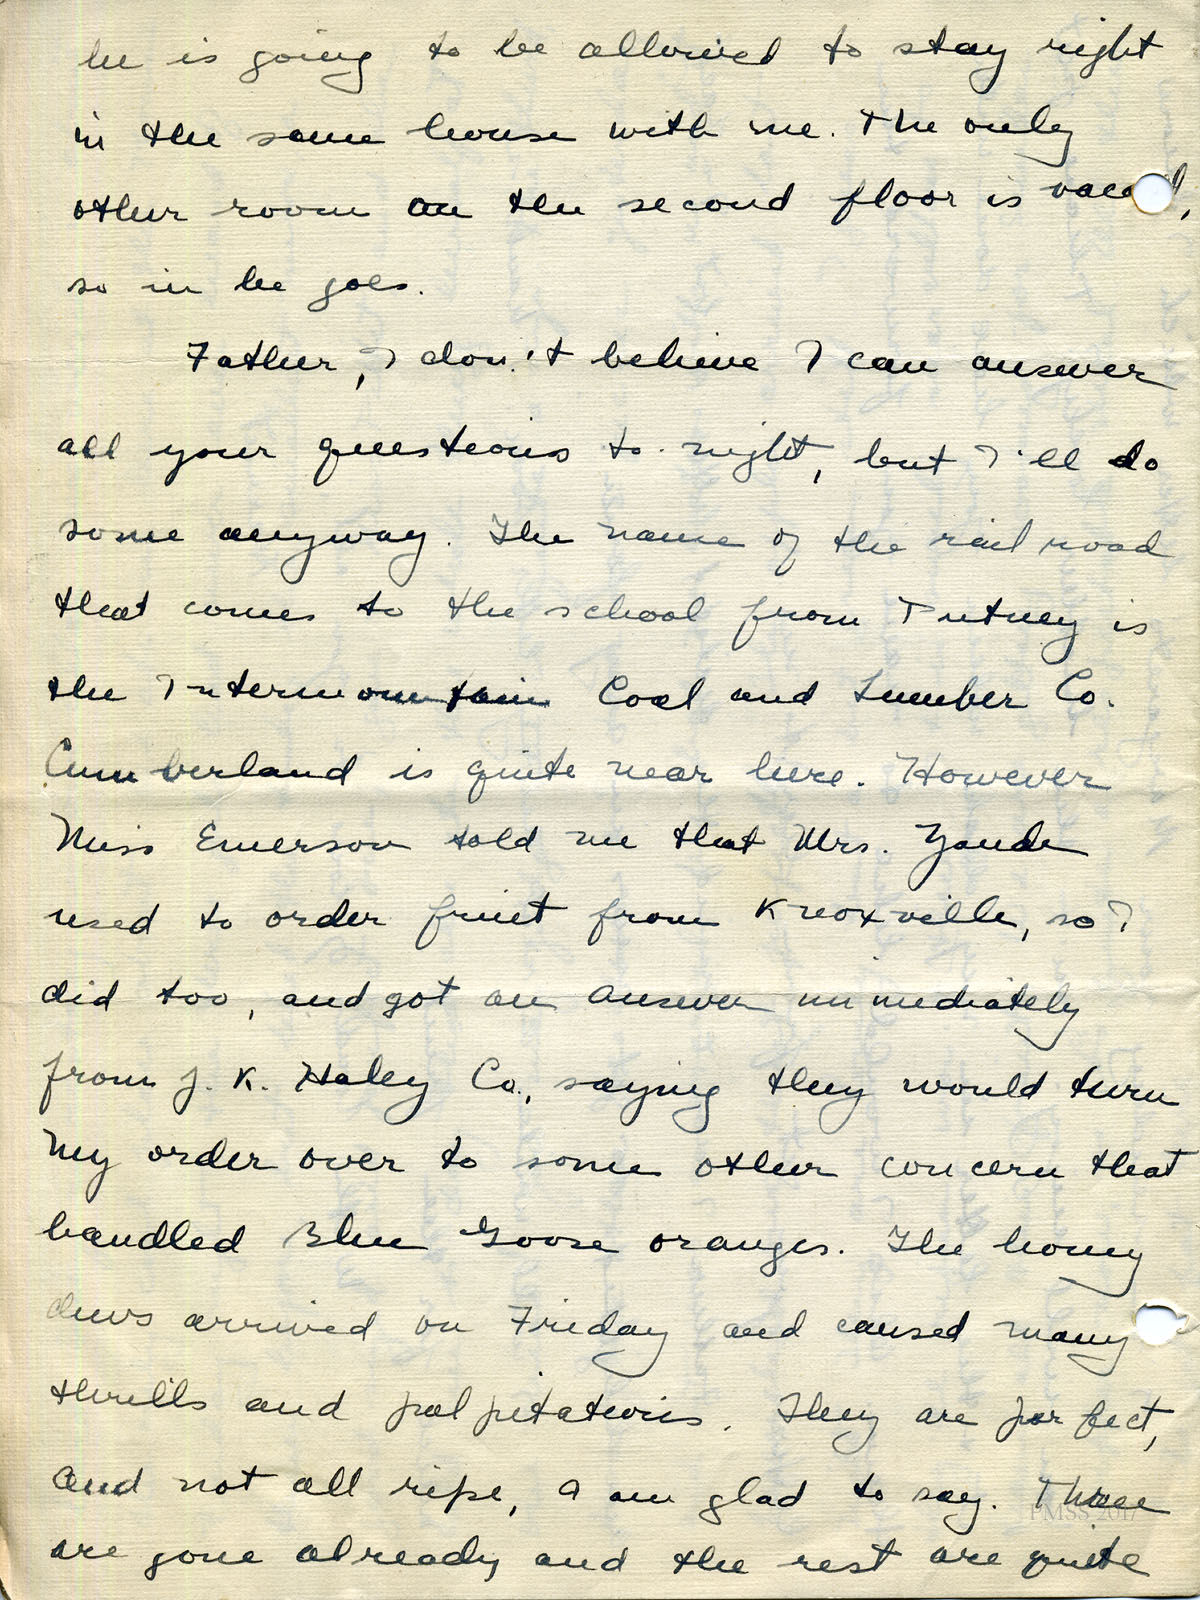 he is going to be allowed to stay right
in the same house with me. The only
other room on the second floor is vacant,
so in he goes.
Father, I don't believe I can answer
all your questions to-night, but I'll do
some anyway. The name of the rail road
that comes to the school from Putney is
the Intermountain Coal and Lumber Co.
Cumberland is quite near here. However
Miss Emerson told me that Mrs. Zande
used to order fruit from Knoxville, so I
did too, and got an answer immediately
from J. K. Haley Co., saying they would turn
my order over to some other concern that
handled Blue Goose oranges. The honey
dews arrived on Friday and caused many
thrills and palpitations. They are perfect,
and not all ripe, I am glad to say. Three
PMSS 2017
are gone already and the rest are quite